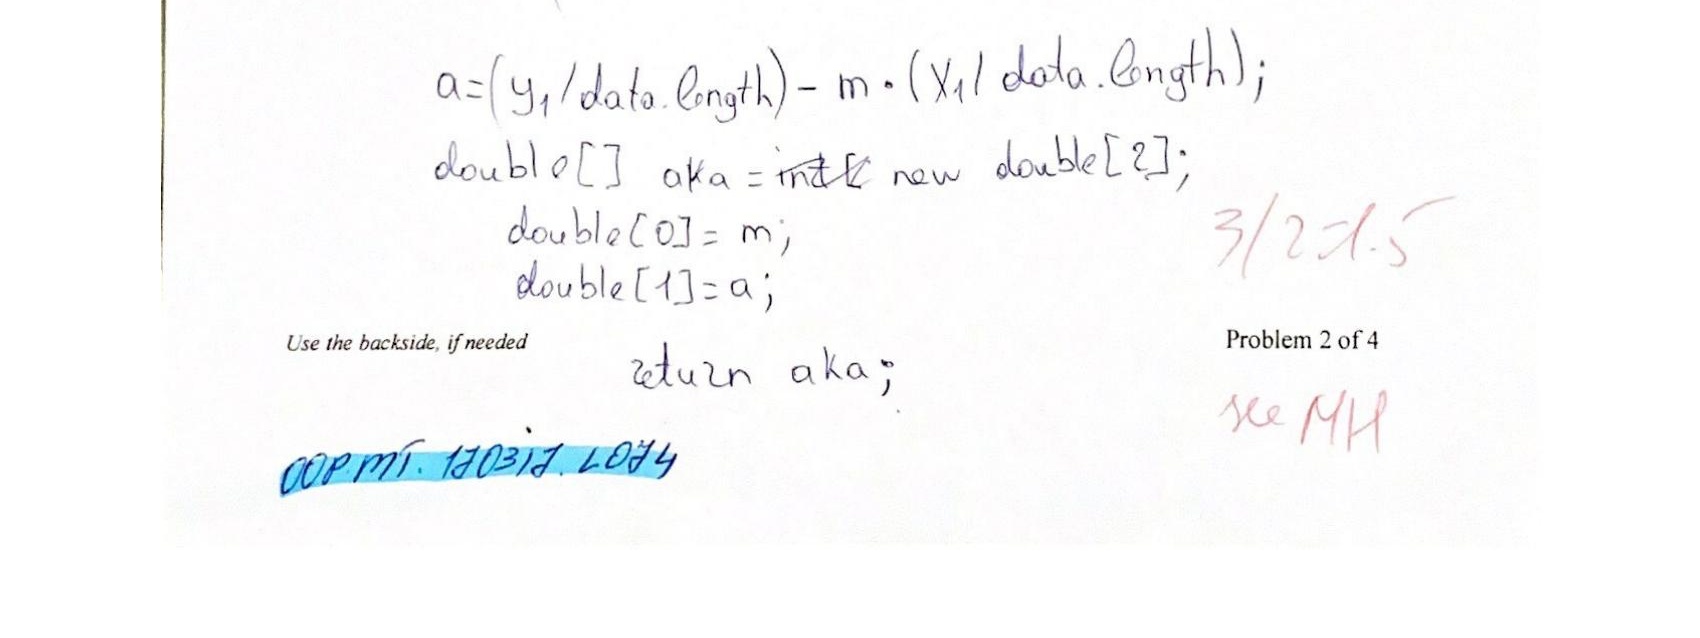 a=(y₁/data.length)- m·(x₁/ data.length);
double[] aka = new double[2];
double[0]= m;
double[1]= a;
3/2=1.5
Use the backside, if needed
Problem 2 of 4
return aka;
see MH
OOP.MT.170317.L074